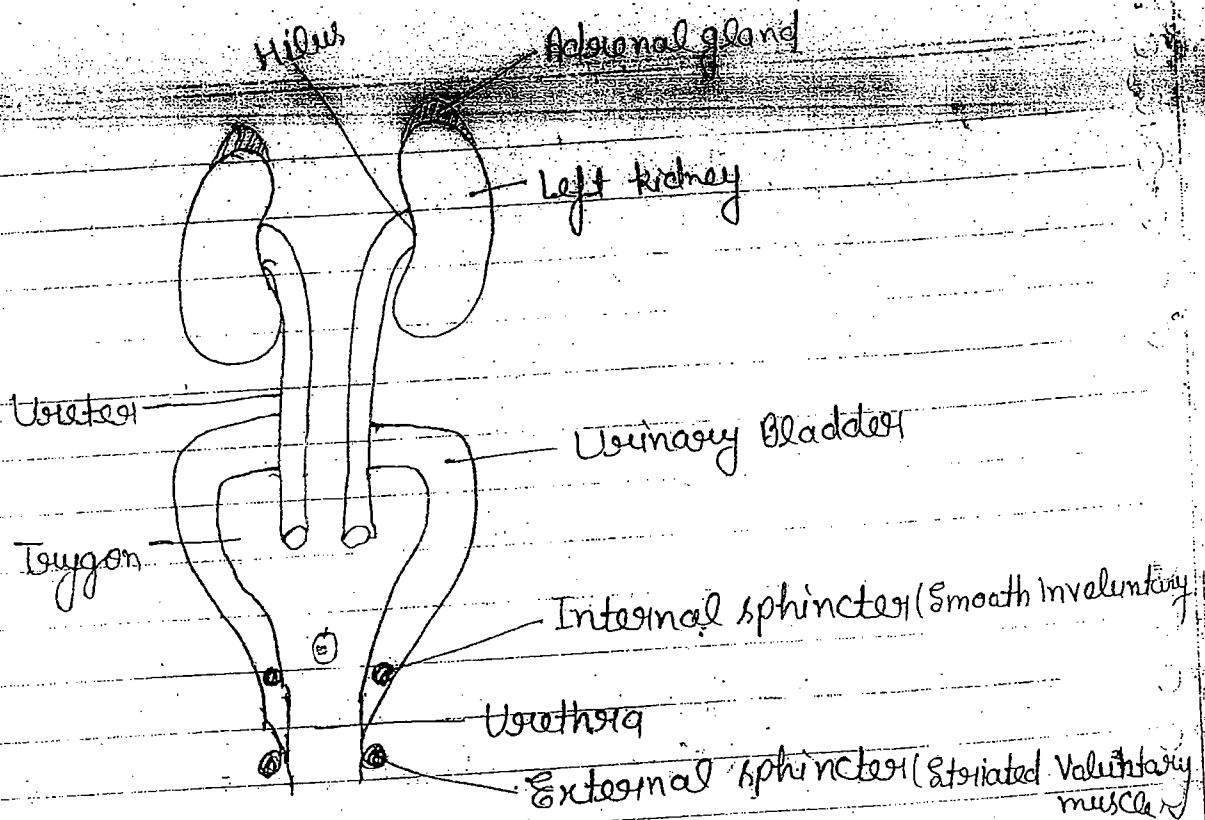 Hilus
Adrenal gland
Left kidney
Ureter
Urinary Bladder
Trygon
Internal sphincter (Smoath Involuntary
Urethra
External sphincter (Striated Valuntary
muscle)